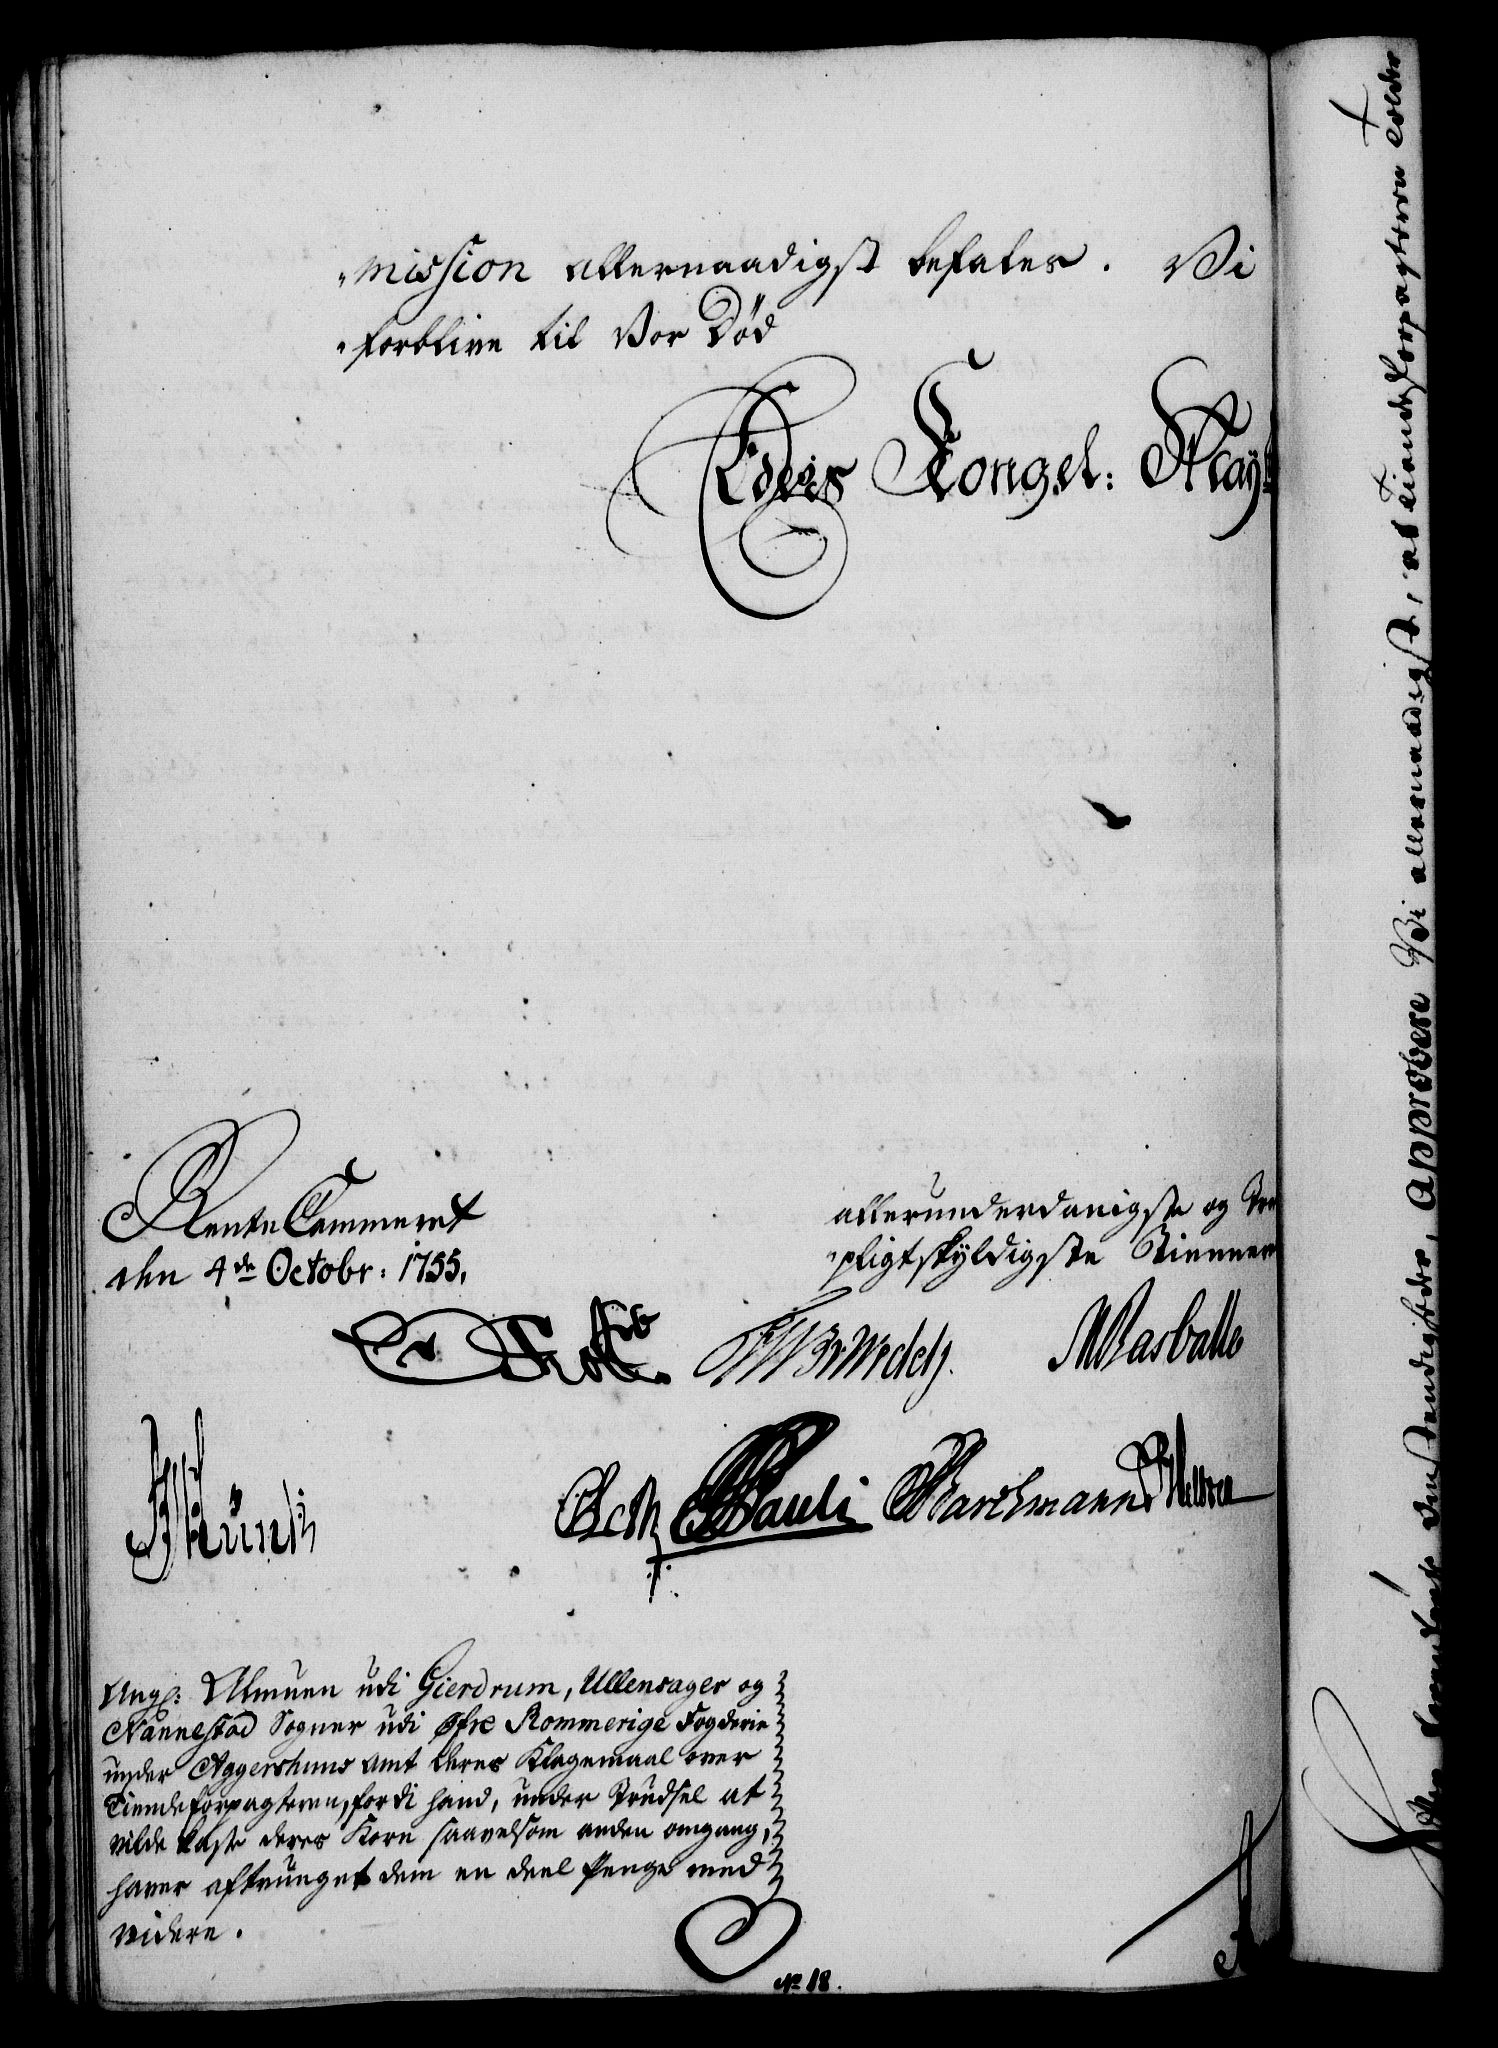 mission allernaadigst befales. Vi
forblive til Vor Død
Eders Kongel: May
RenteCammeret
den 4de Octobr: 1755.
allerunderdanigste og
pligtskyldigste Tienner
Holst. FWvWedelj. MRasballe
Pauli Barchmann
Ang: Almuen udi Gierdrum, Ullensager og
Nannestad Sogner udi Øfre Rommerige Fogderie
under Aggershuus Amt deres Klagemaal over
Tiendeforpagteren, fordi hand, under Trudsel at
vilde kaste deres Korn saavelsom anden omgang,
haver aftvunget dem en deel Penge med
videre.
No 18.
den fuldkomne Approbere Vi allernaadigst, at Tiendeforpagteren